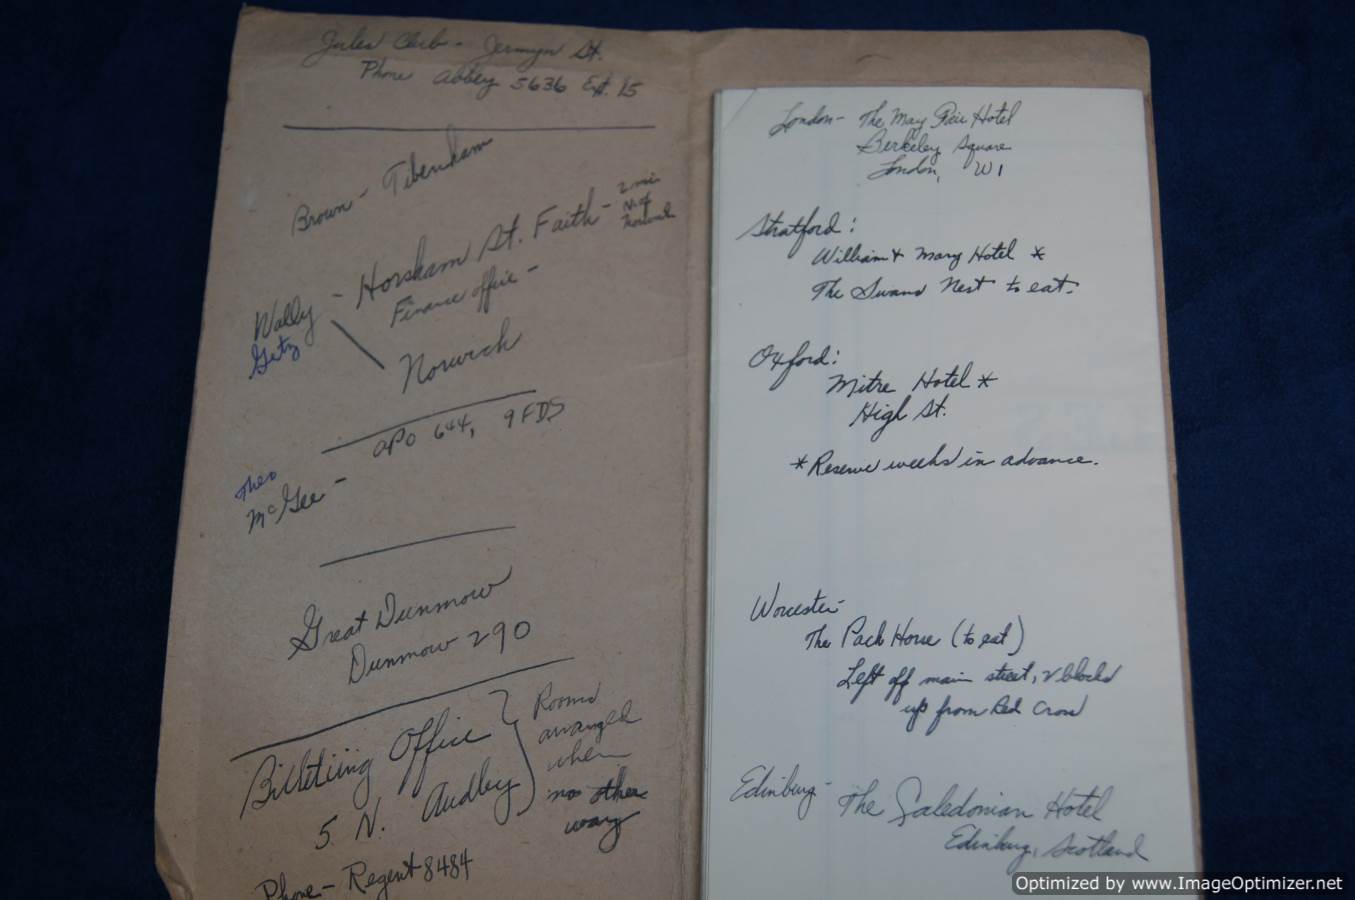 Jules Club - Jermyn St.
Phone Abbey 5636 Ext. 15
Brown - Tibenham
Wally - Horsham St. Faith - 2 mi
N. of
Norwich
Getz
Finance office -
Norwich
APO 644, 9 FDS
Theo
McGee -
Great Dunmow
Dunmow 290
Billetiing Office
5 N. Audley
Rooms
arranged
when
no other
way
Phone - Regent 8484
London - The May Fair Hotel
Berkeley Square
London, W1
Stratford:
William & Mary Hotel *
The Swans Nest to eat.
Oxford:
Mitre Hotel *
High St.
* Reserve weeks in advance.
Worcester -
The Pack Horse (to eat)
Left off main street, 2 blocks
up from Red Cross
Edinburg - The Caledonian Hotel
Edinburg, Scotland
Optimized by www.ImageOptimizer.net